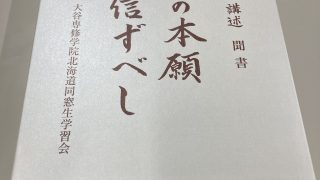 講述 聞書
の本願
信ずべし
大谷専修学院北海道同窓生学習会